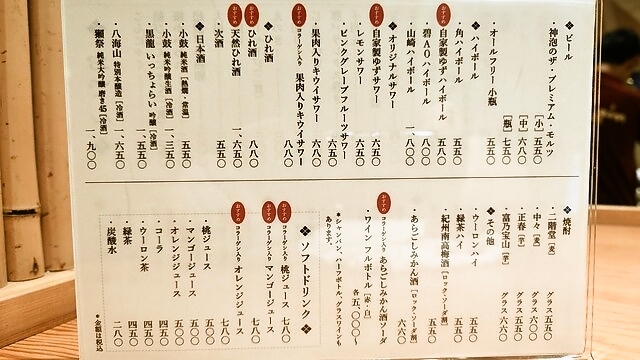 ❖ ビール
・神泡のザ・プレミアム・モルツ
［小］ 五五〇
［中］ 六八〇
［瓶］ 七五〇
・オールフリー 小瓶 五五〇
❖ ハイボール
・角ハイボール 五五〇
おすすめ ・自家製ゆずハイボール 五八〇
・碧AOハイボール 八〇〇
・山崎ハイボール 一、八〇〇
❖ オリジナルサワー
おすすめ ・自家製ゆずサワー 六五〇
・レモンサワー 五五〇
・ピンクグレープフルーツサワー 六五〇
・果肉入りキウイサワー 六八〇
おすすめ コラーゲン入り 果肉入りキウイサワー 八八〇
❖ ひれ酒
おすすめ ・ひれ酒 八八〇
おすすめ ・天然ひれ酒 一、六五〇
・次酒 五五〇
❖ 日本酒
・小鼓 純米酒［熱燗・常温］ 五五〇
・小鼓 純米吟醸生酒［冷酒］ 一、三五〇
・黒龍 いっちょらい 吟醸［冷酒］ 一、五五〇
・八海山 特別本醸造［冷酒］ 一、六五〇
・獺祭 純米大吟醸 磨き45［冷酒］ 一、九〇〇
❖ 焼酎
・二階堂［麦］ グラス 五五〇
・中々［麦］ グラス 六〇〇
・正春［芋］ グラス 五五〇
・富乃宝山［芋］ グラス 六六〇
❖ その他
・ウーロンハイ 五五〇
・緑茶ハイ 五五〇
・紀州南高梅酒［ロック・ソーダ割］ 五五〇
・あらごしみかん酒［ロック・ソーダ割］ 六八〇
おすすめ コラーゲン入り あらごしみかん酒ソーダ
・ワイン フルボトル［赤・白］ 各 五、〇〇〇〜
＊シャンパン、ハーフボトル、グラスワインも
あります。
❖ ソフトドリンク ❖
おすすめ コラーゲン入り 桃ジュース 七八〇
おすすめ コラーゲン入り マンゴージュース 七八〇
おすすめ コラーゲン入り オレンジジュース 七八〇
・桃ジュース 五五〇
・マンゴージュース 五五〇
・オレンジジュース 五〇〇
・コーラ 四五〇
・ウーロン茶 四五〇
・緑茶 四五〇
・炭酸水 二八〇
＊金額は税込